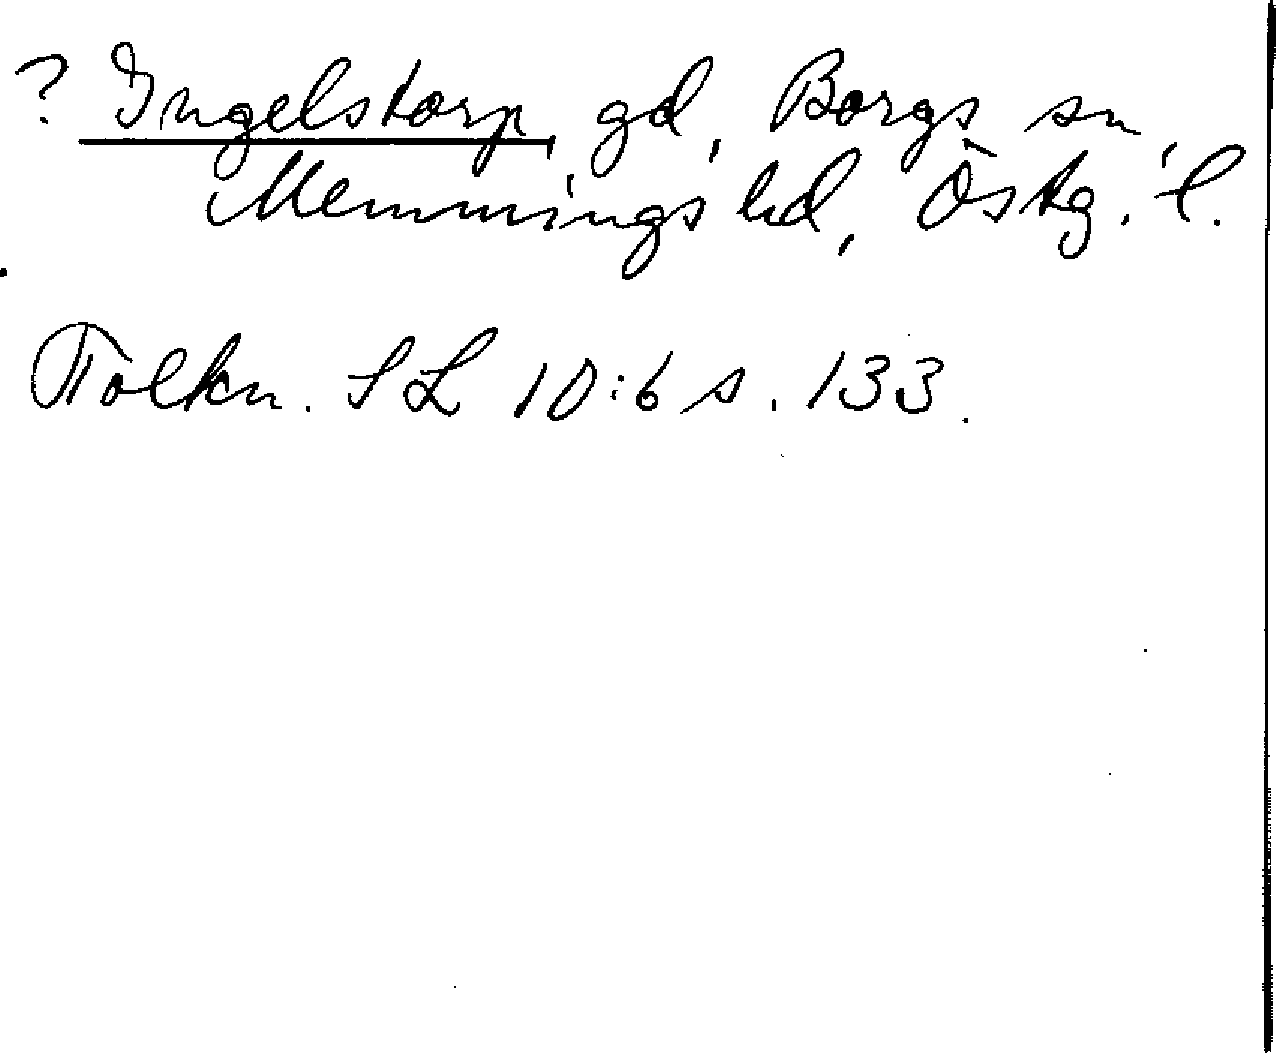 ? Ingelstorp, gd, Borgs sn,
Memmings hd, Östg. l.
Tolkn. SL 10:6 s. 133.